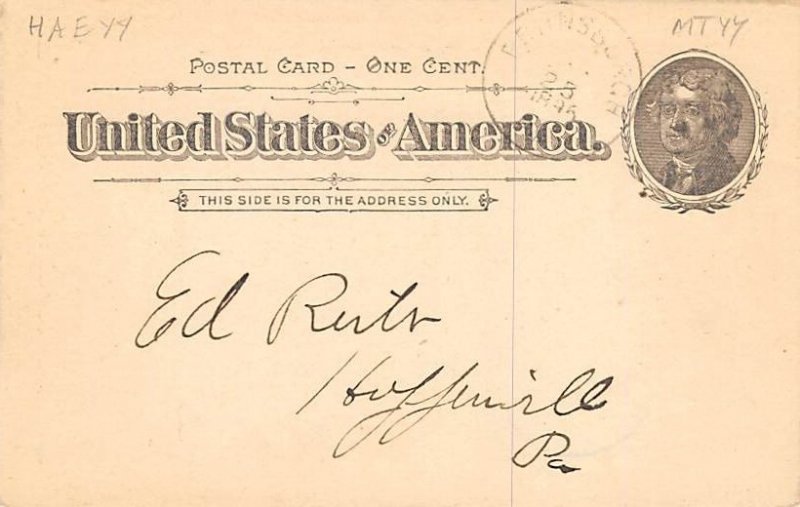 HAEYY
MTYY
POSTAL CARD – ONE CENT.
United States OF America.
THIS SIDE IS FOR THE ADDRESS ONLY.
Ed
Huffenvill
Pa